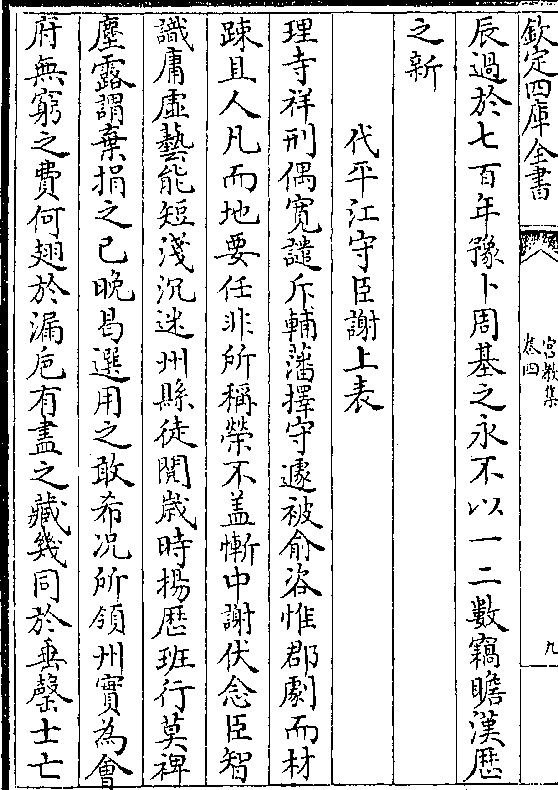 欽定四庫全書
宫教集
卷四
九
辰過於七百年豫卜周基之永不以一二數竊瞻漢厯
之新
代平江守臣謝上表
理寺祥刑偶寛譴斥輔藩擇守遽被俞咨惟郡劇而材
踈且人凡而地要任非所稱榮不盖慚中謝伏念臣智
識庸虚藝能短淺沉迷州縣徒閲歳時揚厯班行莫裨
塵露謂棄捐之已晚曷選用之敢希况所領州實為會
府無窮之費何翅於漏巵有盡之藏幾同於垂罄士亡